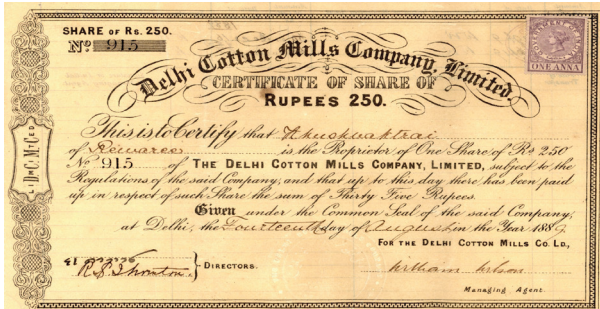 SHARE OF RS. 250.
No 915
ONE ANNA
Delhi Cotton Mills Company, Limited.
CERTIFICATE OF SHARE OF
RUPEES 250.
This is to Certify that Khushwaktrai
of Rewaree is the Proprietor of One Share of Rs 250
No 915 of THE DELHI COTTON MILLS COMPANY, LIMITED, subject to the
Regulations of the said Company, and that up to this day there has been paid
up in respect of such Share the sum of Thirty Five Rupees.
Given under the Common Seal of the said Company,
at Delhi, the Fourteenth day of August in the Year 188
FOR THE DELHI COTTON MILLS CO. LD.,
DIRECTORS.
William
Managing Agent.